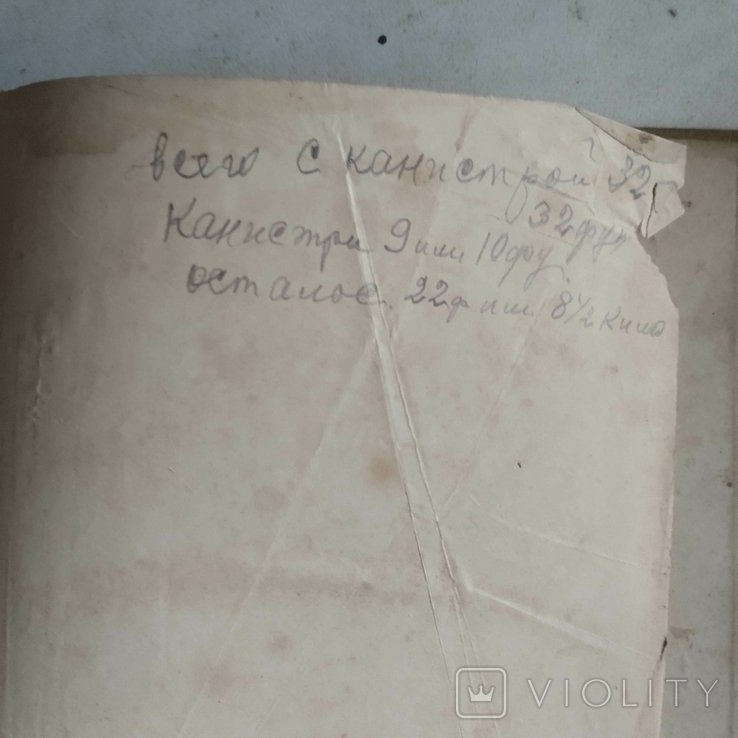 всего с канистрой 32
32 фун
Канистри 9 или 10 фу
осталос 22ф или 8 1/2 кило
VIOLITY